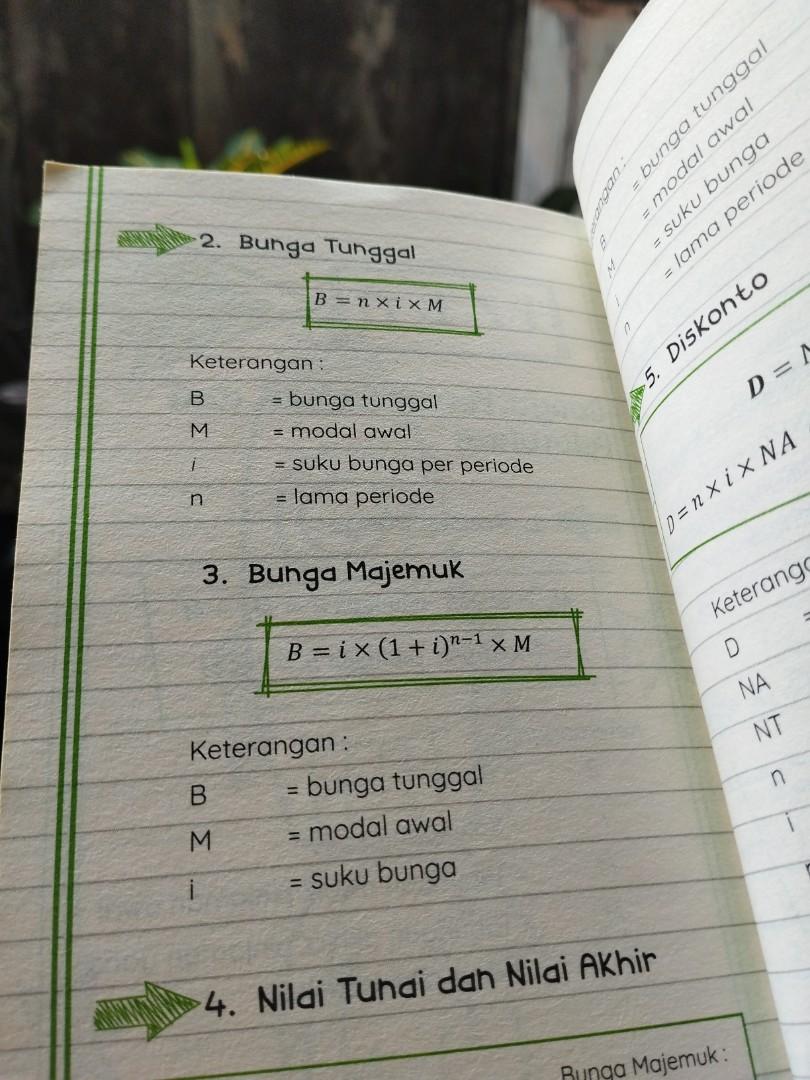 2. Bunga Tunggal
B = n × i × M
Keterangan :
B = bunga tunggal
M = modal awal
i = suku bunga per periode
n = lama periode
3. Bunga Majemuk
B = i × (1 + i)ⁿ⁻¹ × M
Keterangan :
B = bunga tunggal
M = modal awal
i = suku bunga
4. Nilai Tunai dan Nilai Akhir
Bunga Majemuk :
B = bunga tunggal
M = modal awal
i = suku bunga
n = lama periode
5. Diskonto
D =
D = n × i × NA
D =
NA
NT
n
i